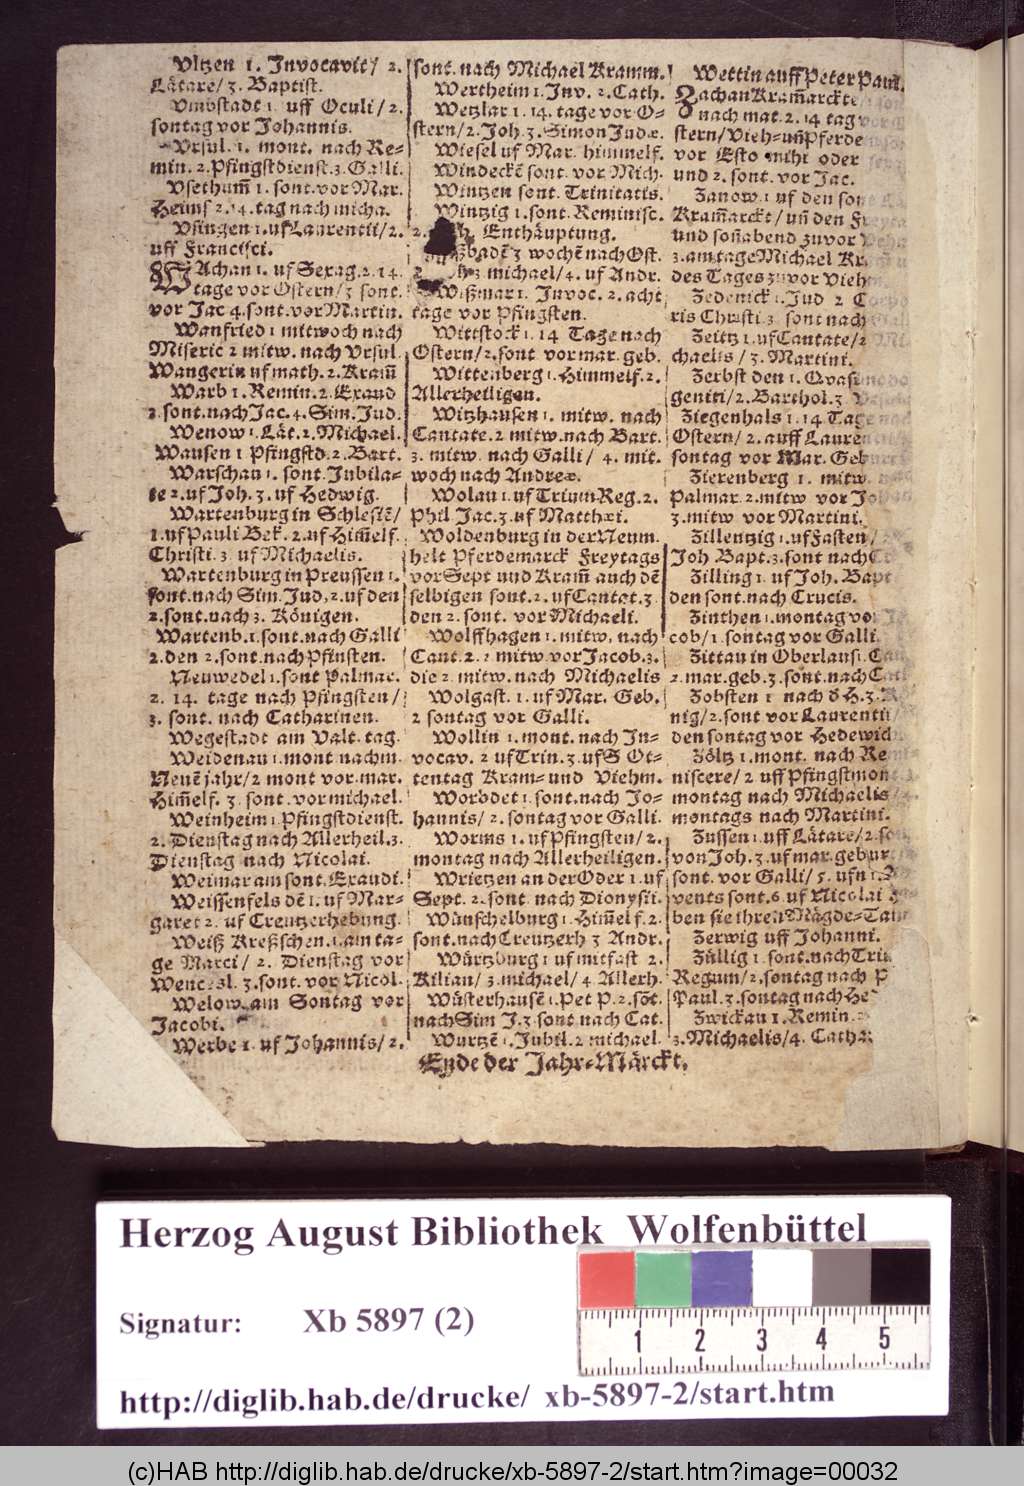 Vltzen 1. Invocavit/ 2.
Lätare/ 3. Baptist.
Vmbstadt 1. uff Oculi/ 2.
sontag vor Johannis.
Vrsul. 1. mont. nach Re-
min. 2. Pfingstdienst. 3. Galli.
Vsethum̃ 1. sont. vor Mar.
Heims. 2. 14. tag nach micha.
Vsingen 1. uf Laurentii/ 2.
uff Francisci.
WAchan 1. uf Sexag. 2. 14.
tage vor Ostern/ 3 sont.
vor Jac 4. sont. vor Martin.
Wanfried 1 mitwoch nach
Miseric 2 mitw. nach Vrsul
Wangerin uf math. 2. Kram̃
Warb 1. Remin. 2. Exaud
3. sont. nach Jac. 4. Sim. Jud.
Wenow 1. Lät. 2. Michael.
Wausen 1 Pfingstd. 2. Bart.
Warschau 1. sont. Jubila-
te 2. uf Joh. 3. uf Hedwig.
Wartenburg in Schlesiẽ/
1. uf Pauli Bek. 2. uf Him̃elf.
Christi. 3. uf Michaelis.
Wartenburg in Preussen 1.
sont. nach Sim. Jud, 2. uf den
2. sont. nach 3. Königen.
Wartenb. 1. sont. nach Galli
2. den 2. sont. nach Pfinsten.
Neuwedel 1. sont Palmar.
2. 14. tage nach Pfingsten/
3. sont. nach Catharinen.
Wegestadt am Valt. tag.
Weidenau 1. mont nachm.
Neuẽ jahr/ 2 mont vor. mar.
Him̃elf. 3. sont. vor michael.
Weinheim 1. Pfingstdienst.
2. Dienstag nach Allerheil. 3.
Dienstag nach Nicolai.
Weimar am sont. Exaudi.
Weissenfels dẽ 1. uf Mar-
garet 2. uf Creutzerhebung.
Weiß Kreßschen. 1. am ta-
ge Marci/ 2. Dienstag vor
Wencesl. 3. sont. vor Nicol.
Welow am Sontag vor
Jacobi.
Werbe 1. uf Johannis/ 2.
sont. nach Michael Kramm.
Wertheim 1. Inv. 2. Cath.
Wetzlar 1. 14. tage vor O-
stern/ 2. Joh. 3. Simon Judæ.
Wiesel uf Mar. himmelf.
Windeckẽ sont. vor Mich.
Wintzen sont. Trinitatis.
Wintzig 1. sont. Reminisc.
2. Enthäuptung.
ßbadẽ 3 wochẽ nach Ost.
3 michael/ 4. uf Andr.
Wißmar 1. Invoc. 2. acht
tage vor Pfingsten.
Wittstock 1. 14 Tage nach
Ostern/ 2. sont vor mar. geb.
Wittenberg 1. Himmelf. 2.
Allerheiligen.
Witzhausen 1. mitw. nach
Cantate. 2 mitw. nach Bart.
3. mitw. nach Galli/ 4. mit.
woch nach Andreæ.
Wolau 1. uf Trium Reg. 2.
Phil Jac. 3. uf Matthæi.
Woldenburg in der Neum.
helt Pferdemarck Freytags
vor Sept und Kram̃ auch dẽ
selbigen sont. 2. uf Cantat. 3.
den 2. sont. vor Michaeli.
Wolffhagen 1. mitw. nach
Cant. 2. 2 mitw. vor Jacob. 3.
die 2. mitw. nach Michaelis
Wolgast. 1. uf Mar. Geb.
2 sontag vor Galli.
Wollin 1. mont. nach In-
vocav. 2 uf Trin. 3. uf S Ot-
tentag Kram- und Viehm.
Worbdet 1. sont. nach Jo-
hannis/ 2. sontag vor Galli.
Worms 1. uf Pfingsten/ 2.
montag nach Allerheiligen.
Wrietzen an der Oder 1. uf
Sept. 2. sont. nach Dionysii.
Wünschelburg 1. Him̃elf. 2.
sont. nach Creutzerh 3 Andr.
Würtzburg 1 uf mitfast 2.
Kilian/ 3. michael/ 4 Allerh.
Wüsterhausẽ 1. Pet P. 2. sõt.
nach Sim J. 3. sont. nach Cat.
Wurtzẽ 1. Jubil. 2 michael.
Wettin auff Peter Paul.
ZAchan Kram̃arckte
nach mat. 2. 14 tag vor
stern/ Vieh- uñ Pferde
vor Esto mihi oder
und 2. sont. vor Jac.
Zanow. 1 uf den son
Kram̃arckt/ uñ den
und soñabend zuvor
3. am tage Michael Kr
des Tages zuvor Vieh
Zedenick 1. Jud 2 C
ris Christi 3. sont nach
Zeitz 1. uf Cantate/ 2
chaelis/ 3. Martini.
Zerbst den 1. Qvasi
geniti/ 2. Barthol. 3
Ziegenhals 1. 14 Tage
Ostern/ 2. auff Lauren
sontag vor Mar. Geb
Zierenberg 1. mitw.
Palmar. 2. mitw vor Jo
3. mitw vor Martini.
Zillentzig 1. uf Fasten/
Joh Bapt. 3. sont nach
Zilling 1. uf Joh. Bapt
den sont. nach Crucis.
Zinthen 1. montag vor
cob/ 1. sontag vor Galli.
Zittau in Oberlaus 1.
2. mar. geb. 3. sont. nach
Zobsten 1 nach d H. 3. K
nig/ 2. sont vor Laurentii/
den sontag vor Hedewich
Zöltz 1. mont. nach Re
niscere/ 2 uff Pfingstmon
montag nach Michaelis
montags nach Martini.
Zussen 1. uff Lätare/ 2. so
von Joh. 3. uf mar. gebur
sont. vor Galli/ 5. uf
vents sont. 6. uf Nicolai
ben sie ihren Mägde-Tan
Zerwig uff Johanni.
Züllig 1. sont. nach Trin
Regum/ 2. sontag nach P
Paul. 3. sontag nach He
Zwickau 1. Remin.
3. Michaelis/ 4. Cathar
Ende der Jahr-Märckt.
Herzog August Bibliothek Wolfenbüttel
Signatur: Xb 5897 (2)
1 2 3 4 5
http://diglib.hab.de/drucke/ xb-5897-2/start.htm
(c)HAB http://diglib.hab.de/drucke/xb-5897-2/start.htm?image=00032